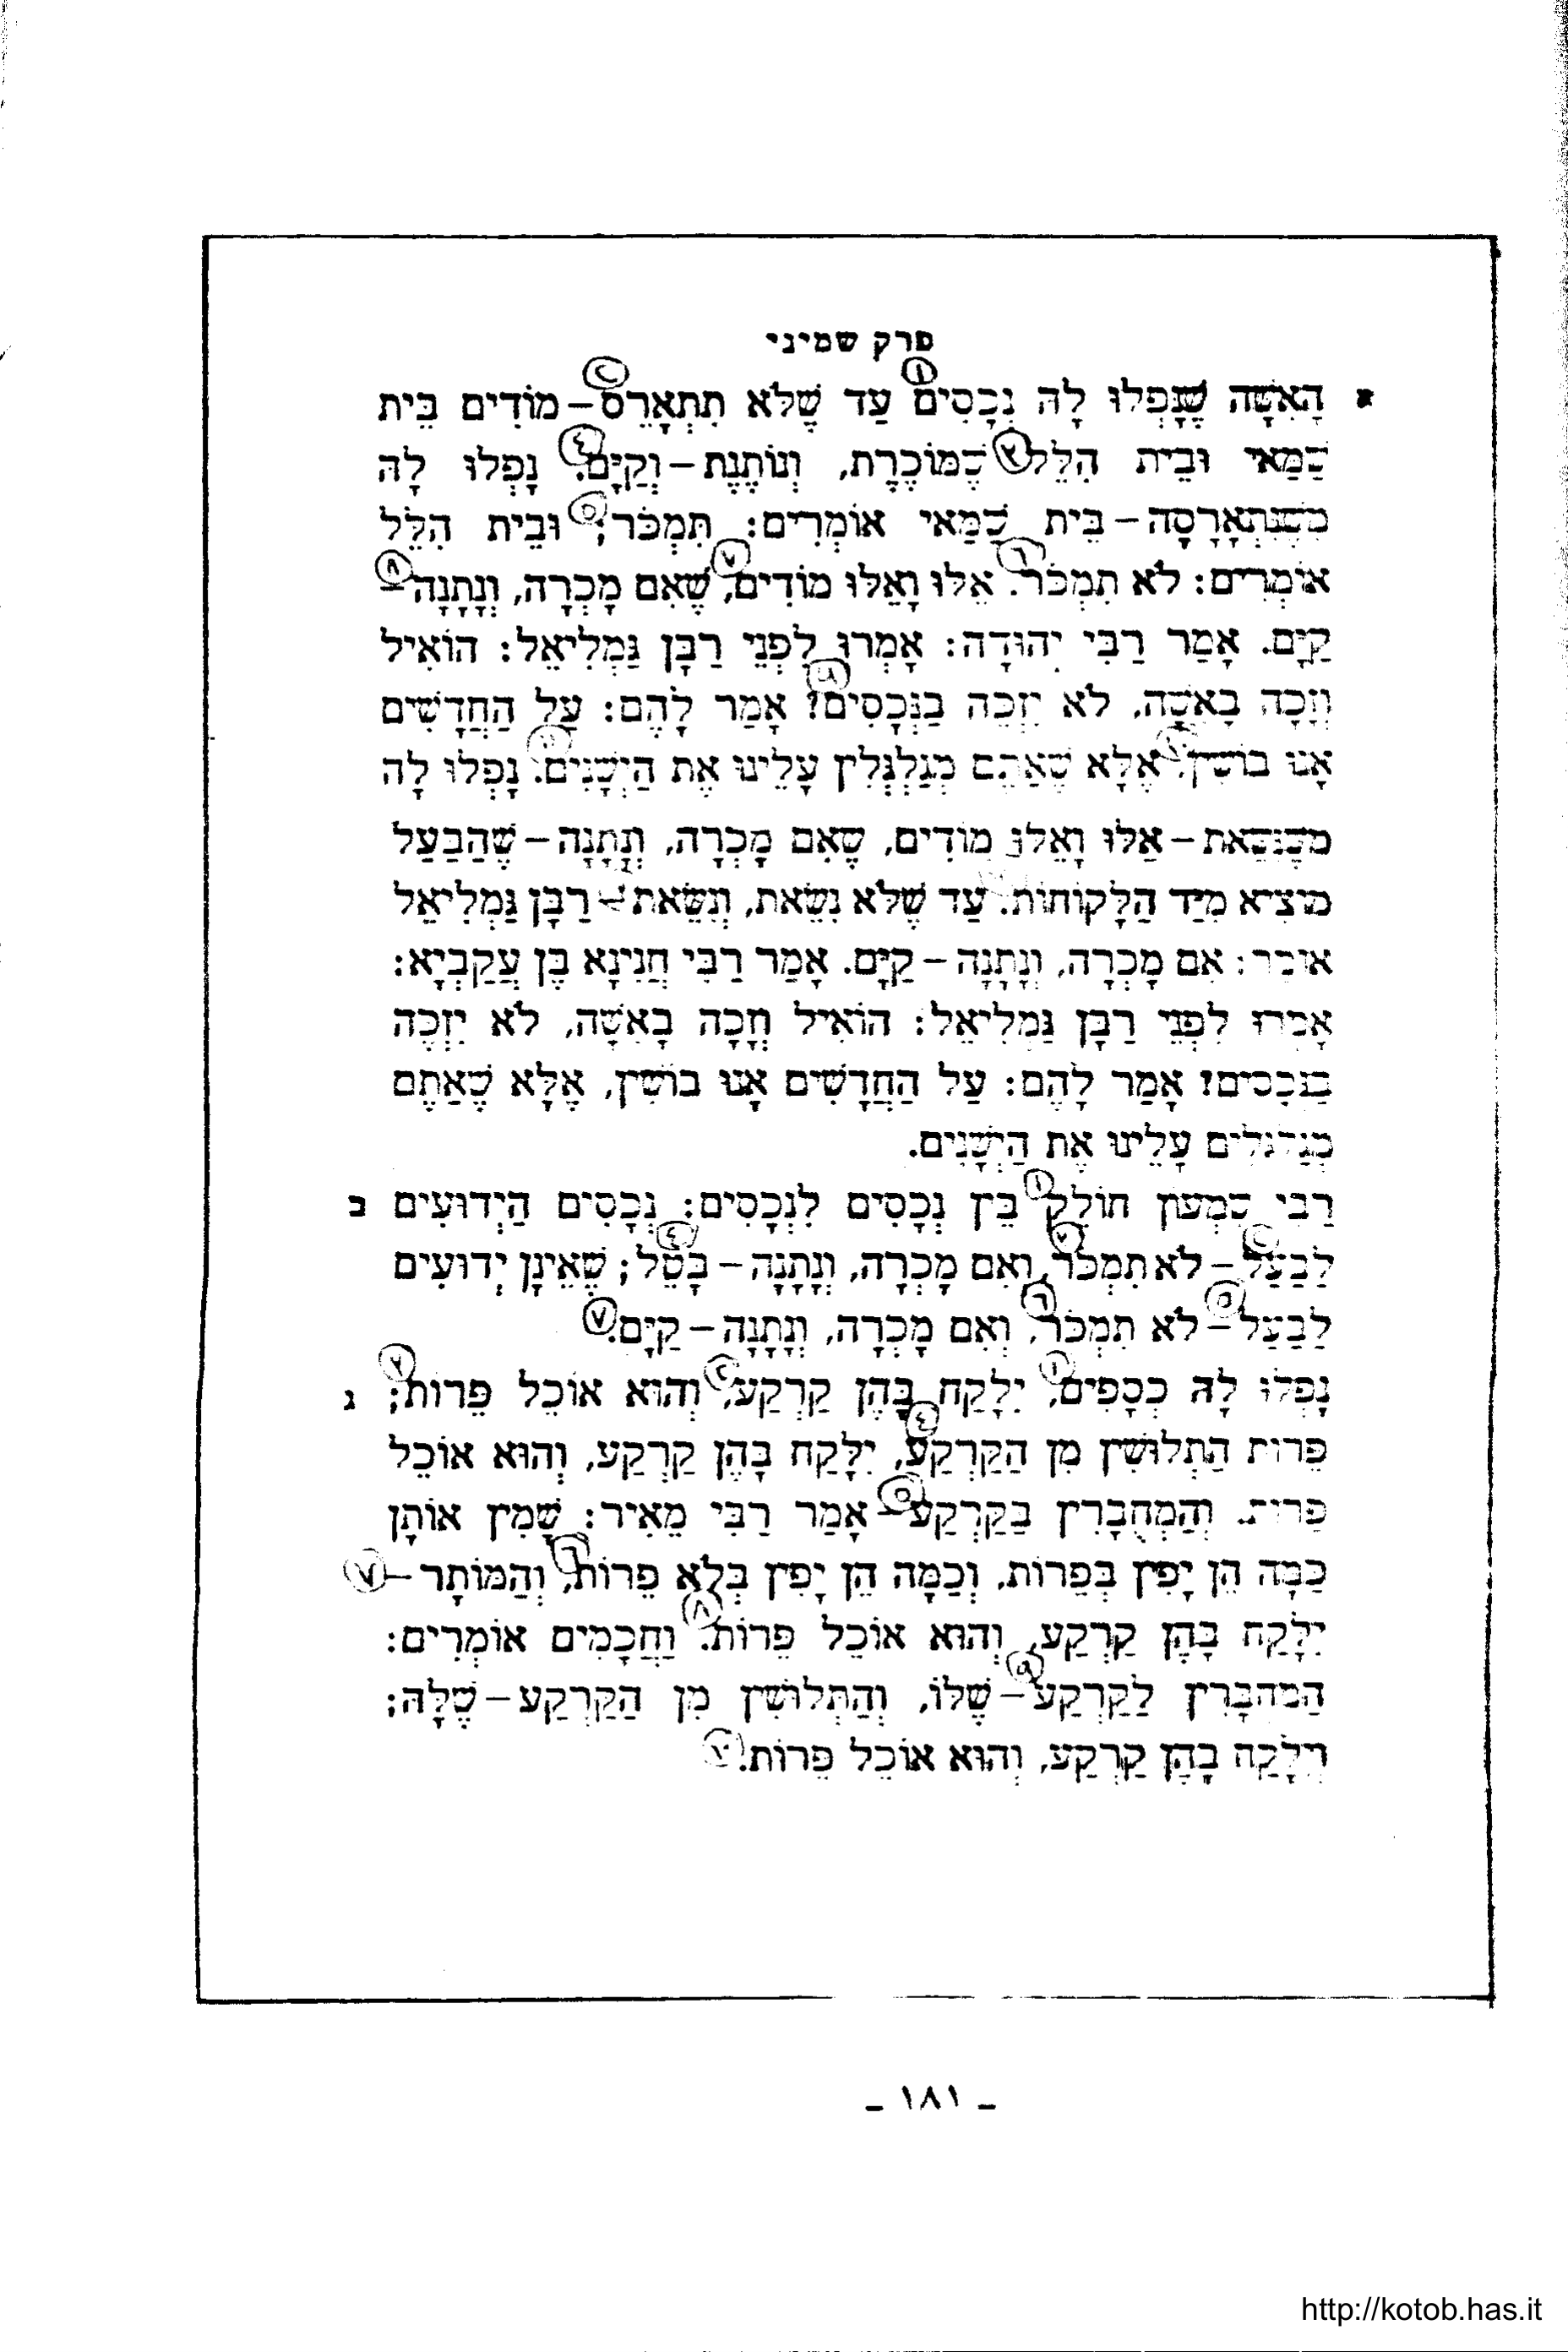 פרק שמיני
א הָאִשָּׁה שֶׁנָּפְלוּ לָהּ נְכָסִים עַד שֶׁלֹּא תִתְאָרֵס – מוֹדִים בֵּית
שַׁמַּאי וּבֵית הִלֵּל שֶׁמּוֹכֶרֶת, וְנוֹתֶנֶת – וְקַיָּם. נָפְלוּ לָהּ
מִשֶּׁנִּתְאָרְסָה – בֵּית שַׁמַּאי אוֹמְרִים: תִּמְכֹּר; וּבֵית הִלֵּל
אוֹמְרִים: לֹא תִמְכֹּר. אֵלּוּ וָאֵלּוּ מוֹדִים, שֶׁאִם מָכְרָה, וְנָתָנָה –
קַיָּם. אָמַר רַבִּי יְהוּדָה: אָמְרוּ לִפְנֵי רַבָּן גַּמְלִיאֵל: הוֹאִיל
וְזָכָה בָאִשָּׁה, לֹא יִזְכֶּה בַנְּכָסִים? אָמַר לָהֶם: עַל הַחֲדָשִׁים
אָנוּ בוֹשִׁין, אֶלָּא שֶׁאַתֶּם מְגַלְגְּלִין עָלֵינוּ אֶת הַיְשָׁנִים. נָפְלוּ לָהּ
מִשֶּׁנִּשֵּׂאת – אֵלּוּ וָאֵלּוּ מוֹדִים, שֶׁאִם מָכְרָה, וְנָתָנָה – שֶׁהַבַּעַל
מוֹצִיא מִיַּד הַלָּקוֹחוֹת. עַד שֶׁלֹּא נִשֵּׂאת, וְנִשֵּׂאת – רַבָּן גַּמְלִיאֵל
אוֹמֵר: אִם מָכְרָה, וְנָתָנָה – קַיָּם. אָמַר רַבִּי חֲנִינָא בֶּן עֲקַבְיָא:
אָמְרוּ לִפְנֵי רַבָּן גַּמְלִיאֵל: הוֹאִיל וְזָכָה בָאִשָּׁה, לֹא יִזְכֶּה
בַנְּכָסִים? אָמַר לָהֶם: עַל הַחֲדָשִׁים אָנוּ בוֹשִׁין, אֶלָּא שֶׁאַתֶּם
מְגַלְגְּלִים עָלֵינוּ אֶת הַיְשָׁנִים.
ב רַבִּי שִׁמְעוֹן חוֹלֵק בֵּין נְכָסִים לִנְכָסִים: נְכָסִים הַיְדוּעִים
לַבַּעַל – לֹא תִמְכֹּר, וְאִם מָכְרָה, וְנָתָנָה – בָּטֵל; שֶׁאֵינָן יְדוּעִים
לַבַּעַל – לֹא תִמְכֹּר, וְאִם מָכְרָה, וְנָתָנָה – קַיָּם.
ג נָפְלוּ לָהּ כְּסָפִים, יִלָּקַח בָּהֶן קַרְקַע, וְהוּא אוֹכֵל פֵּרוֹת;
פֵּרוֹת הַתְּלוּשִׁין מִן הַקַּרְקַע, יִלָּקַח בָּהֶן קַרְקַע, וְהוּא אוֹכֵל
פֵּרוֹת. וְהַמְחֻבָּרִין בַּקַּרְקַע – אָמַר רַבִּי מֵאִיר: שָׁמִין אוֹתָן
כַּמָּה הֵן יָפִין בְּפֵרוֹת, וְכַמָּה הֵן יָפִין בְּלֹא פֵרוֹת, וְהַמּוֹתָר –
יִלָּקַח בָּהֶן קַרְקַע, וְהוּא אוֹכֵל פֵּרוֹת. וַחֲכָמִים אוֹמְרִים:
הַמְחֻבָּרִין לַקַּרְקַע – שֶׁלּוֹ, וְהַתְּלוּשִׁין מִן הַקַּרְקַע – שֶׁלָּהּ;
וְיִלָּקַח בָּהֶן קַרְקַע, וְהוּא אוֹכֵל פֵּרוֹת.
– ١٨١ –
http://kotob.has.it